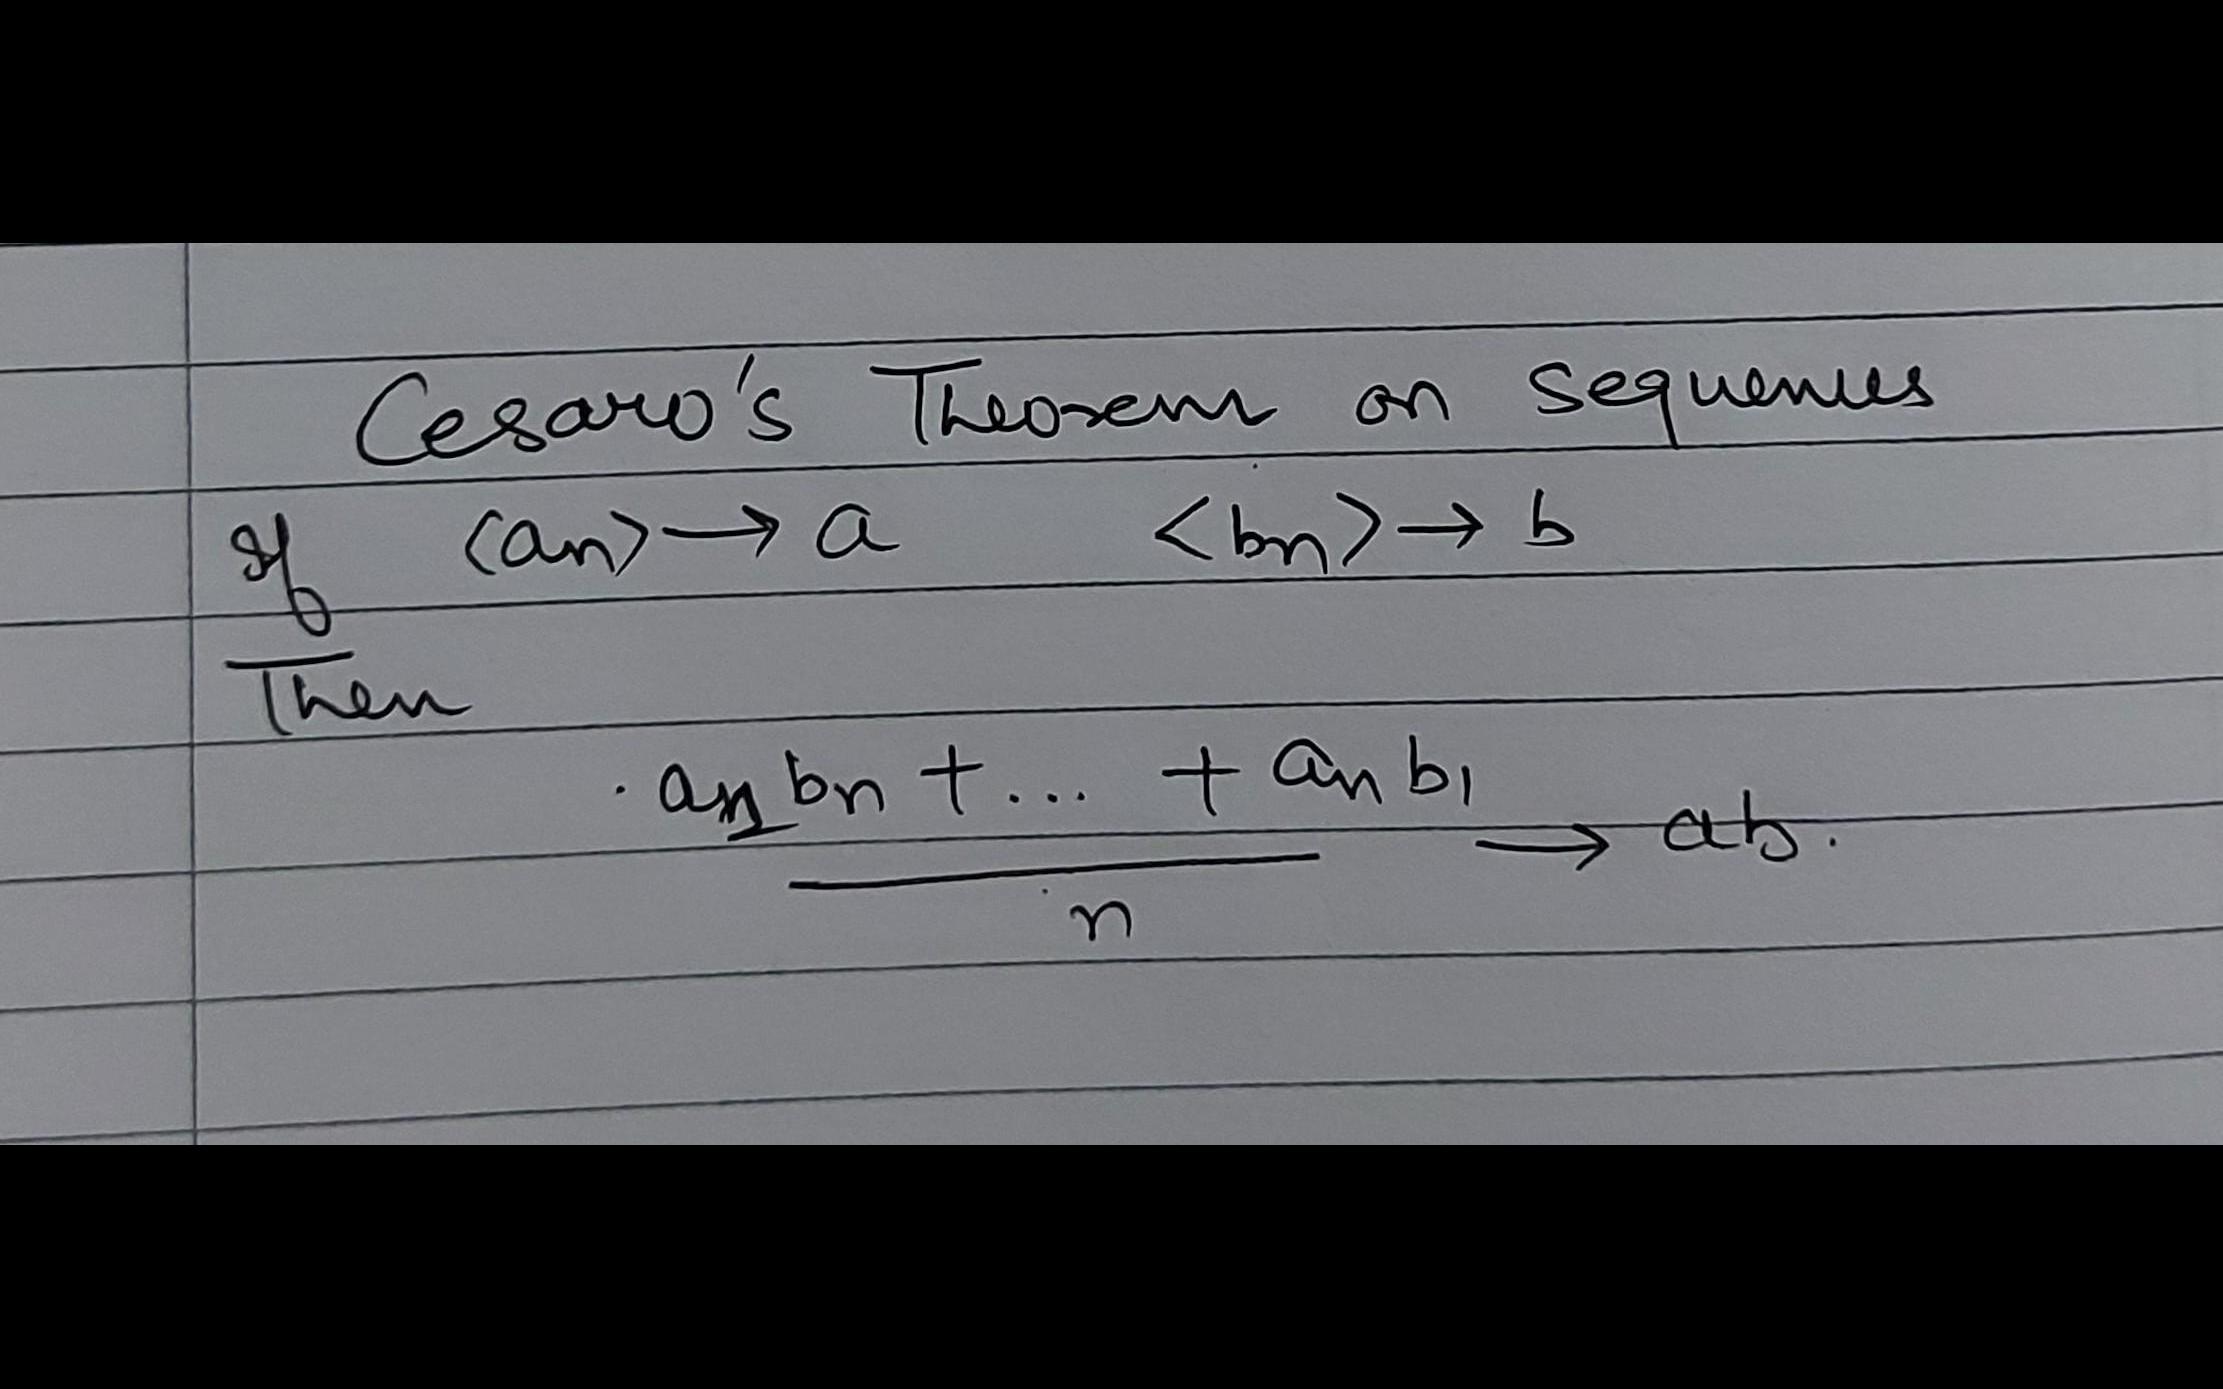 Cesaro's Theorem on sequences
If <an> → a <bn> → b
Then
a1 bn + ... + an b1 → ab.
n